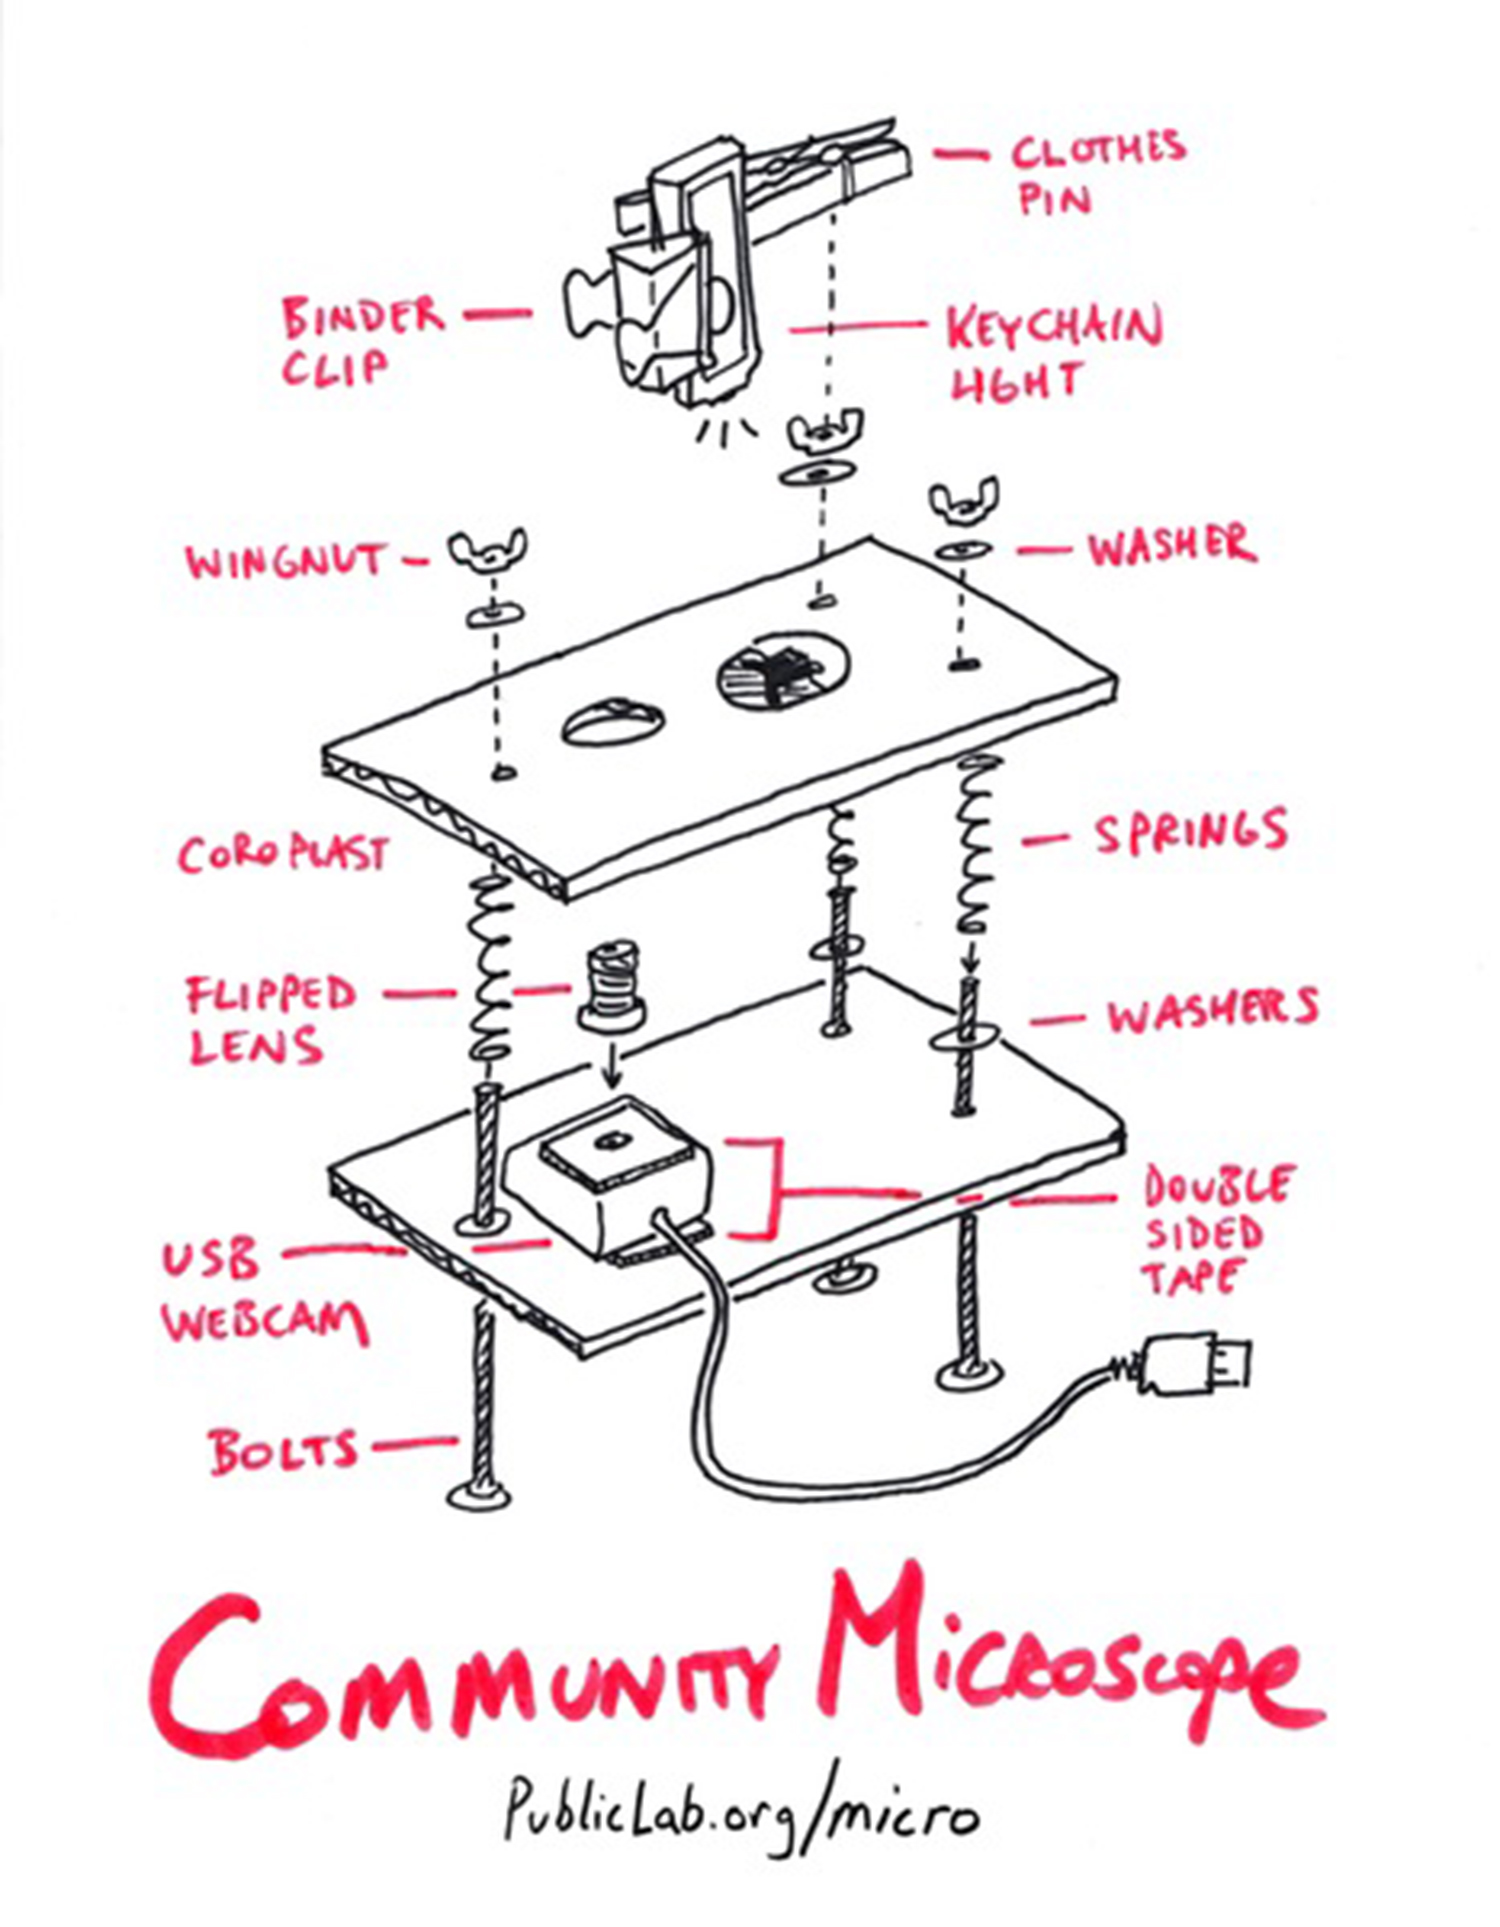 CLOTHES
PIN
BINDER
CLIP
KEYCHAIN
LIGHT
WINGNUT
WASHER
COROPLAST
SPRINGS
FLIPPED
LENS
WASHERS
DOUBLE
SIDED
TAPE
USB
WEBCAM
BOLTS
COMMUNITY MICROSCOPE
PublicLab.org/micro